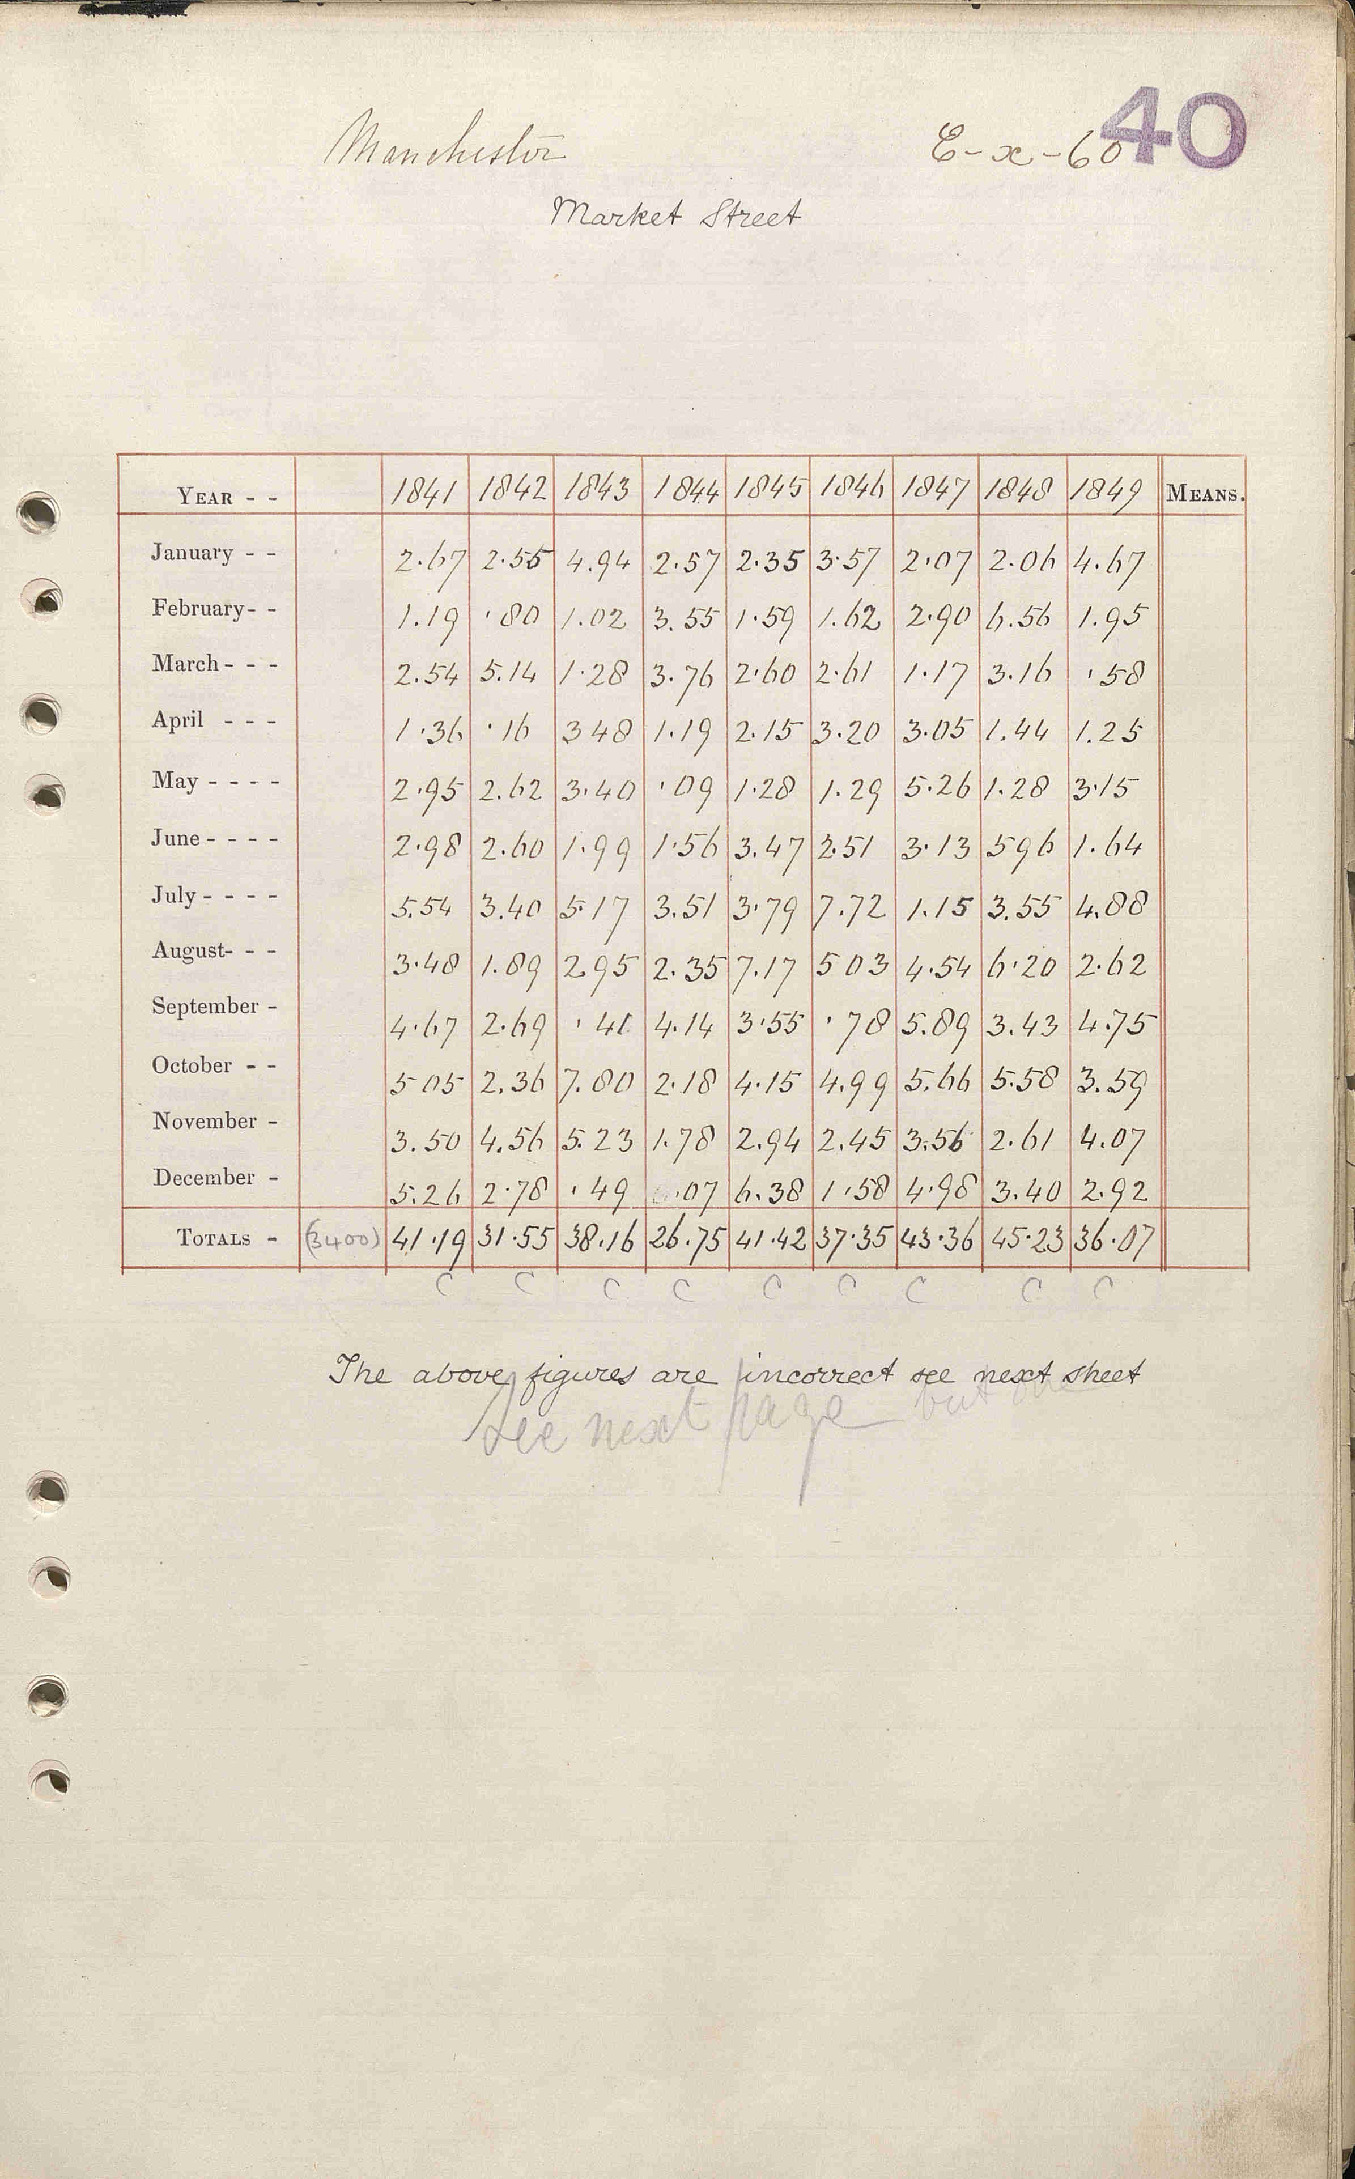 40
Manchester E-x-60
Market Street
YEAR - - 1841 1842 1843 1844 1845 1846 1847 1848 1849 MEANS.
January - - 2.67 2.55 4.94 2.57 2.35 3.57 2.07 2.06 4.67
February- - 1.19 .80 1.02 3.55 1.59 1.62 2.90 6.56 1.95
March - - - 2.54 5.14 1.28 3.76 2.60 2.61 1.17 3.16 .58
April - - - 1.36 .16 3 48 1.19 2.15 3.20 3.05 1.44 1.25
May - - - - 2.95 2.62 3.40 .09 1.28 1.29 5.26 1.28 3.15
June - - - - 2.98 2.60 1.99 1.56 3.47 2.51 3.13 5 96 1.64
July - - - - 5.54 3.40 5.17 3.51 3.79 7.72 1.15 3.55 4.88
August- - - 3.48 1.89 2.95 2.35 7.17 5 03 4.54 6.20 2.62
September - 4.67 2.69 .41 4.14 3.55 .78 5.89 3.43 4.75
October - - 5 05 2.36 7.80 2.18 4.15 4.99 5.66 5.58 3.59
November - 3.50 4.56 5.23 1.78 2.94 2.45 3.56 2.61 4.07
December - 5.26 2.78 .49 .07 6.38 1.58 4.98 3.40 2.92
TOTALS - (3400) 41.19 31.55 38.16 26.75 41.42 37.35 43.36 45.23 36.07
C C C C C C C C C
The above figures are incorrect see next sheet
See next page but one